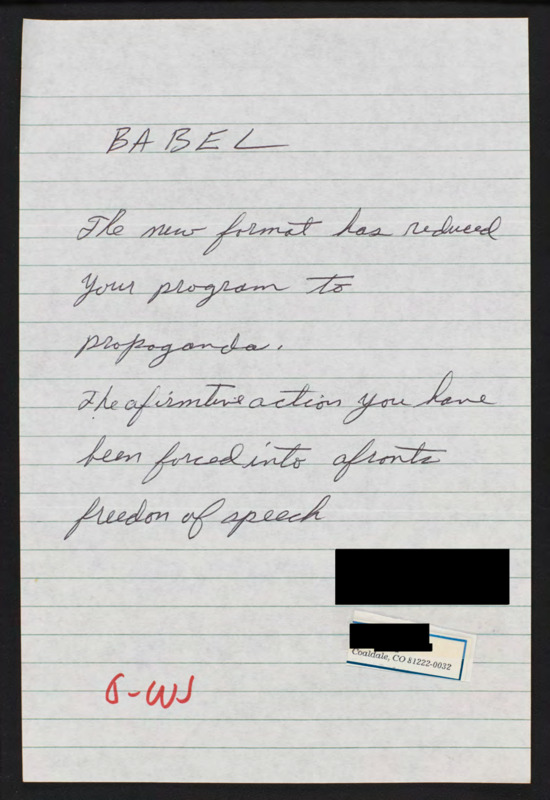 BABEL
The new format has reduced
your program to
propoganda.
The afirmtive action you have
been forced into afronts
freedon of speech
Coaldale, CO 81222-0032
G-WJ